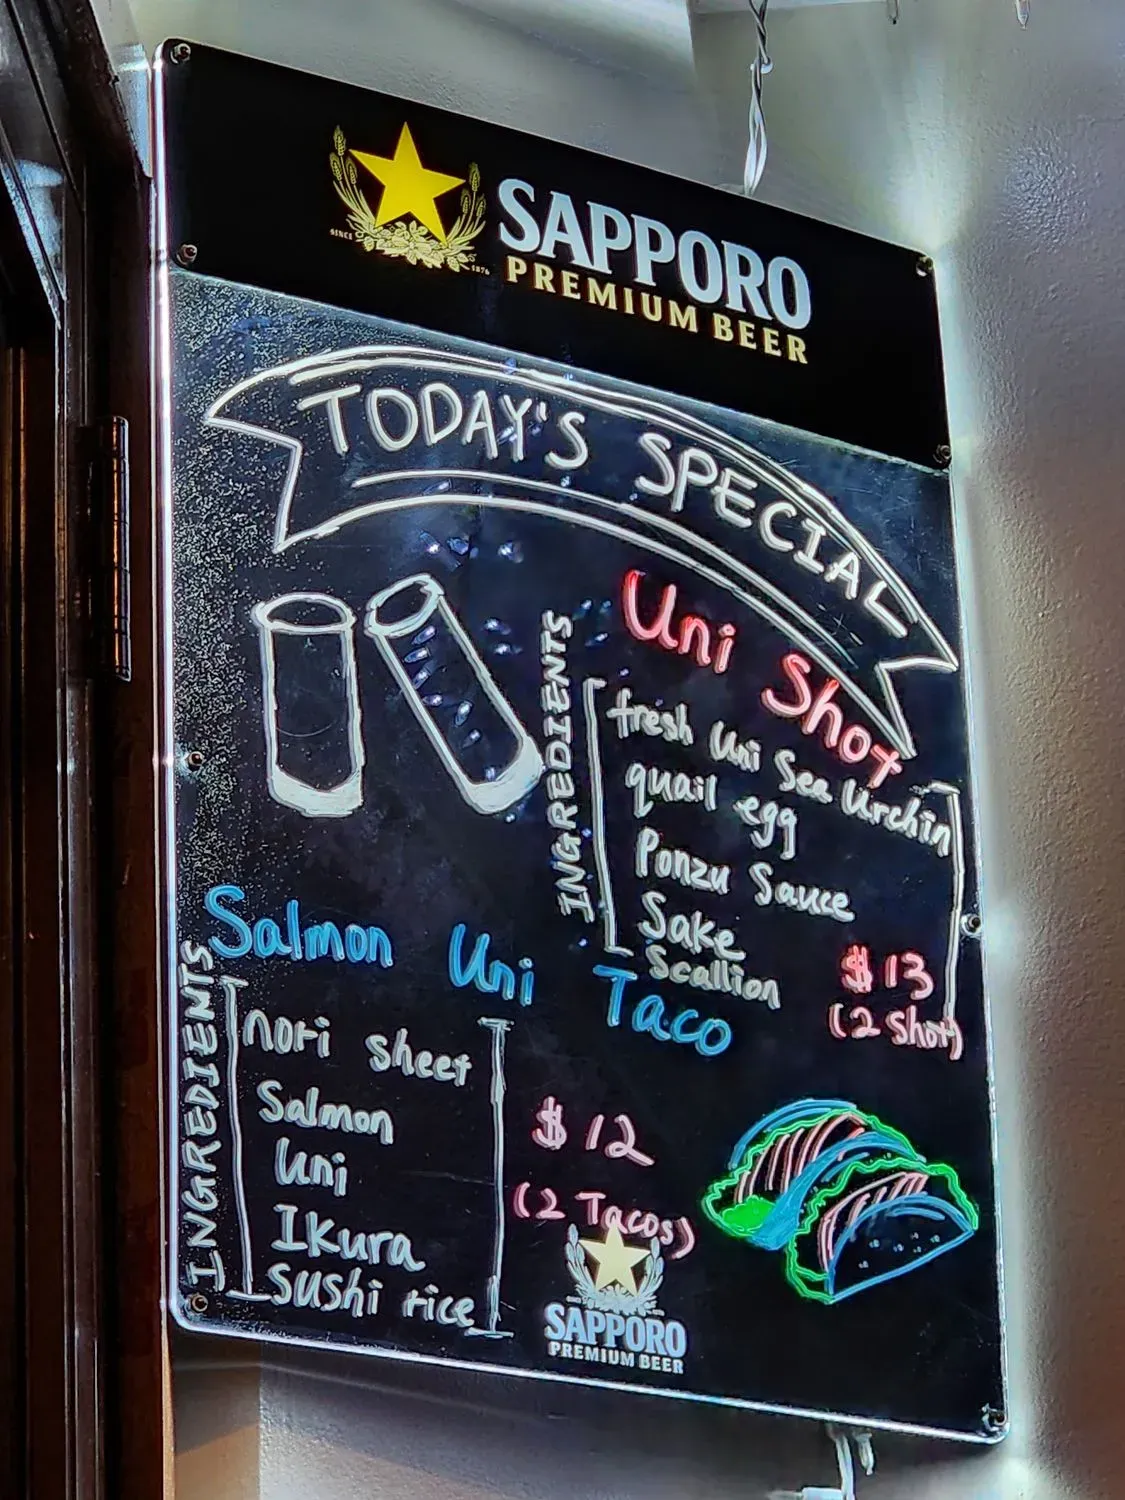 SINCE 1876
SAPPORO
PREMIUM BEER
TODAY'S SPECIAL
Uni Shot
INGREDIENTS
fresh Uni Sea Urchin
quail egg
Ponzu Sauce
Sake
Scallion
$13
(2 Shot)
Salmon Uni Taco
INGREDIENTS
nori sheet
Salmon
Uni
Ikura
sushi rice
$12
(2 Tacos)
SAPPORO
PREMIUM BEER